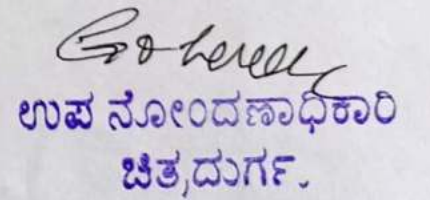 ಉಪ ನೋಂದಣಾಧಿಕಾರಿ
ಚಿತ್ರದುರ್ಗ.